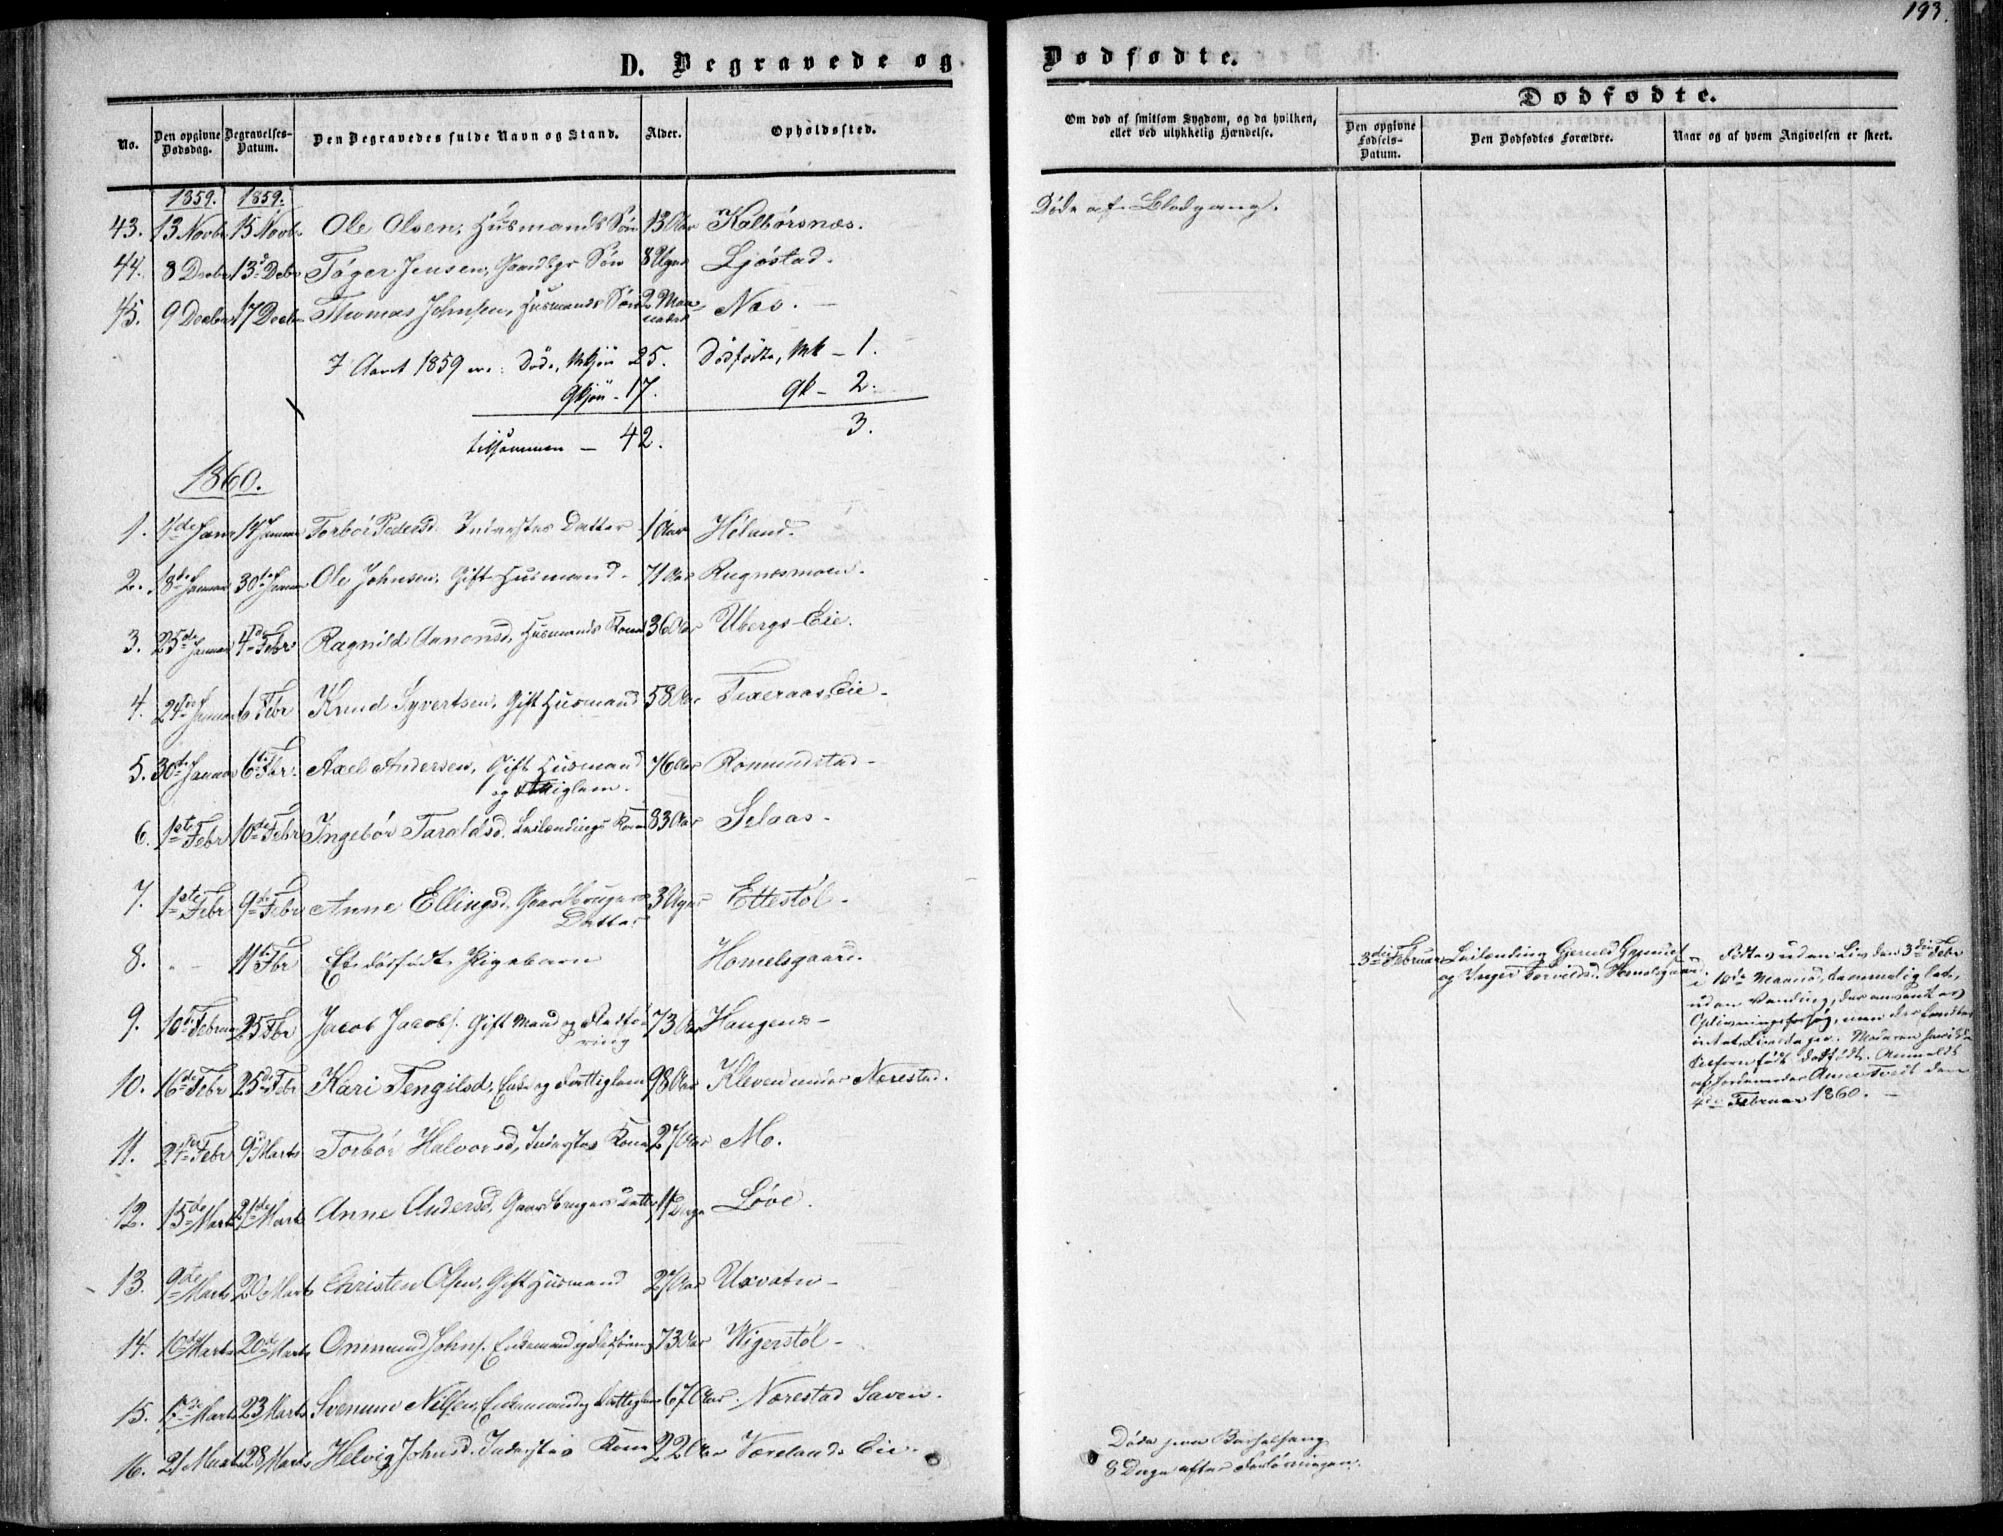 193.
D. Begravede og Dødfødte.
Dødfødte.
No.
Den opgivne Dødsdag.
Begravelses-Datum.
Den Begravedes fulde Navn og Stand.
Alder.
Opholdssted.
Om død af smitsom Sygdom, og da hvilken, eller ved ulykkelig Hændelse.
Den opgivne Fødsels-Datum.
Den Dødfødtes Forældre.
Naar og af hvem Angivelsen er skeet.
1859. 1859.
43. 13 Novbr 15 Novbr Ole Olsen, Husmands Søn 13 Aar Kalbørsnæs. Døde af Blodgang.
44. 8 Decbr 13de Debr Tøger Jensen, Gaardbgr Søn 8 Uger Ljøstad.
45. 9 Decbr 17 Decbr Thomas Johnsen, Husmands Søn 2 Maaneder Næs.
I Aaret 1859 ere: Døde, Mkjøn 25. Dødfødte, Mk – 1.
Qkjøn – 17. qk – 2.
tilsammen – 42. 3.
1860.
1. 1de Janr 14 Januar Torbør Pedersd. Inderstes Datter 1 Aar Høland.
2. 18de Januar 30te Januar Ole Johnsen, Gift Husmand 71 Aar Rugnæsmoen.
3. 25de Januar 4de Febr Ragnild Aanonsd, Husmands Kone 36 Aar Ubergs-Eie.
4. 24de Januar 6 Febr Knud Syvertsen, Gift Husmand 58 Aar Fixeraas Eie
5. 30te Januar 6te Febr. Axel Andersen, Gift Husmand 76 Aar Romundstad
og Fattiglem.
6. 1ste Febr 10de Febr Ingebør Taraldsd. Leilændings Kone 83 Aar Selaas
7. 1ste Febr 9de Febr Anne Ellingsd. Gaardbrugers Datter 3 Uger Ettestøl
8. " – 11te Fbr Et dødfødt Pigebarn Homelsgaard.
3die Februar Leilending Gjeruld
og Inger Torvildsd. Homelsgaard.
Fødtes uden Liv den 3die Febr
i 10de Maaned, temmelig let,
uden Vending, der anvendtes
Oplivningsforsøg, men der fandtes
intet Livstegn. Moderen havde
før født dødfødt. Anmeldt
af Jordemoder Anne Tveit den
4de Februar 1860.
9. 10de Februar 25 Fbr Jacob Jacobs. Gift Mand og Fladføring 73 Aar Haugenes
10. 16de Febr 25de Febr Kari Tengilsd, Enke og Fattiglem 98 Aar Kleven under Nærestad.
11. 24de Febr 9d Marts Torbør Halvorsd, Inderstes Kone 27 Aar Mo.
12. 15de Marts 21de Marts Anne Andersd, Gaardbrugers Datter 11 Dage Løve.
13. 9de Marts 20 Marts Christen Olsen, Gift Husmand 27 Aar Uxvatn
14. 10de Marts 20de Marts Ommund Johns. Enkemand og Fladføring 73 Aar Wigerstøl
15. 17de Marts 23 Marts Svenum Nilsen, Enkemand og Fattiglem 67 Aar. Nærestad Saven.
16. 21 Marts 28 Marts Helvig Johnsd. Inderstes Kone 22 Aar Værelands Eie.
Døde paa Barselseng
8 Dage efter Forløsningen.